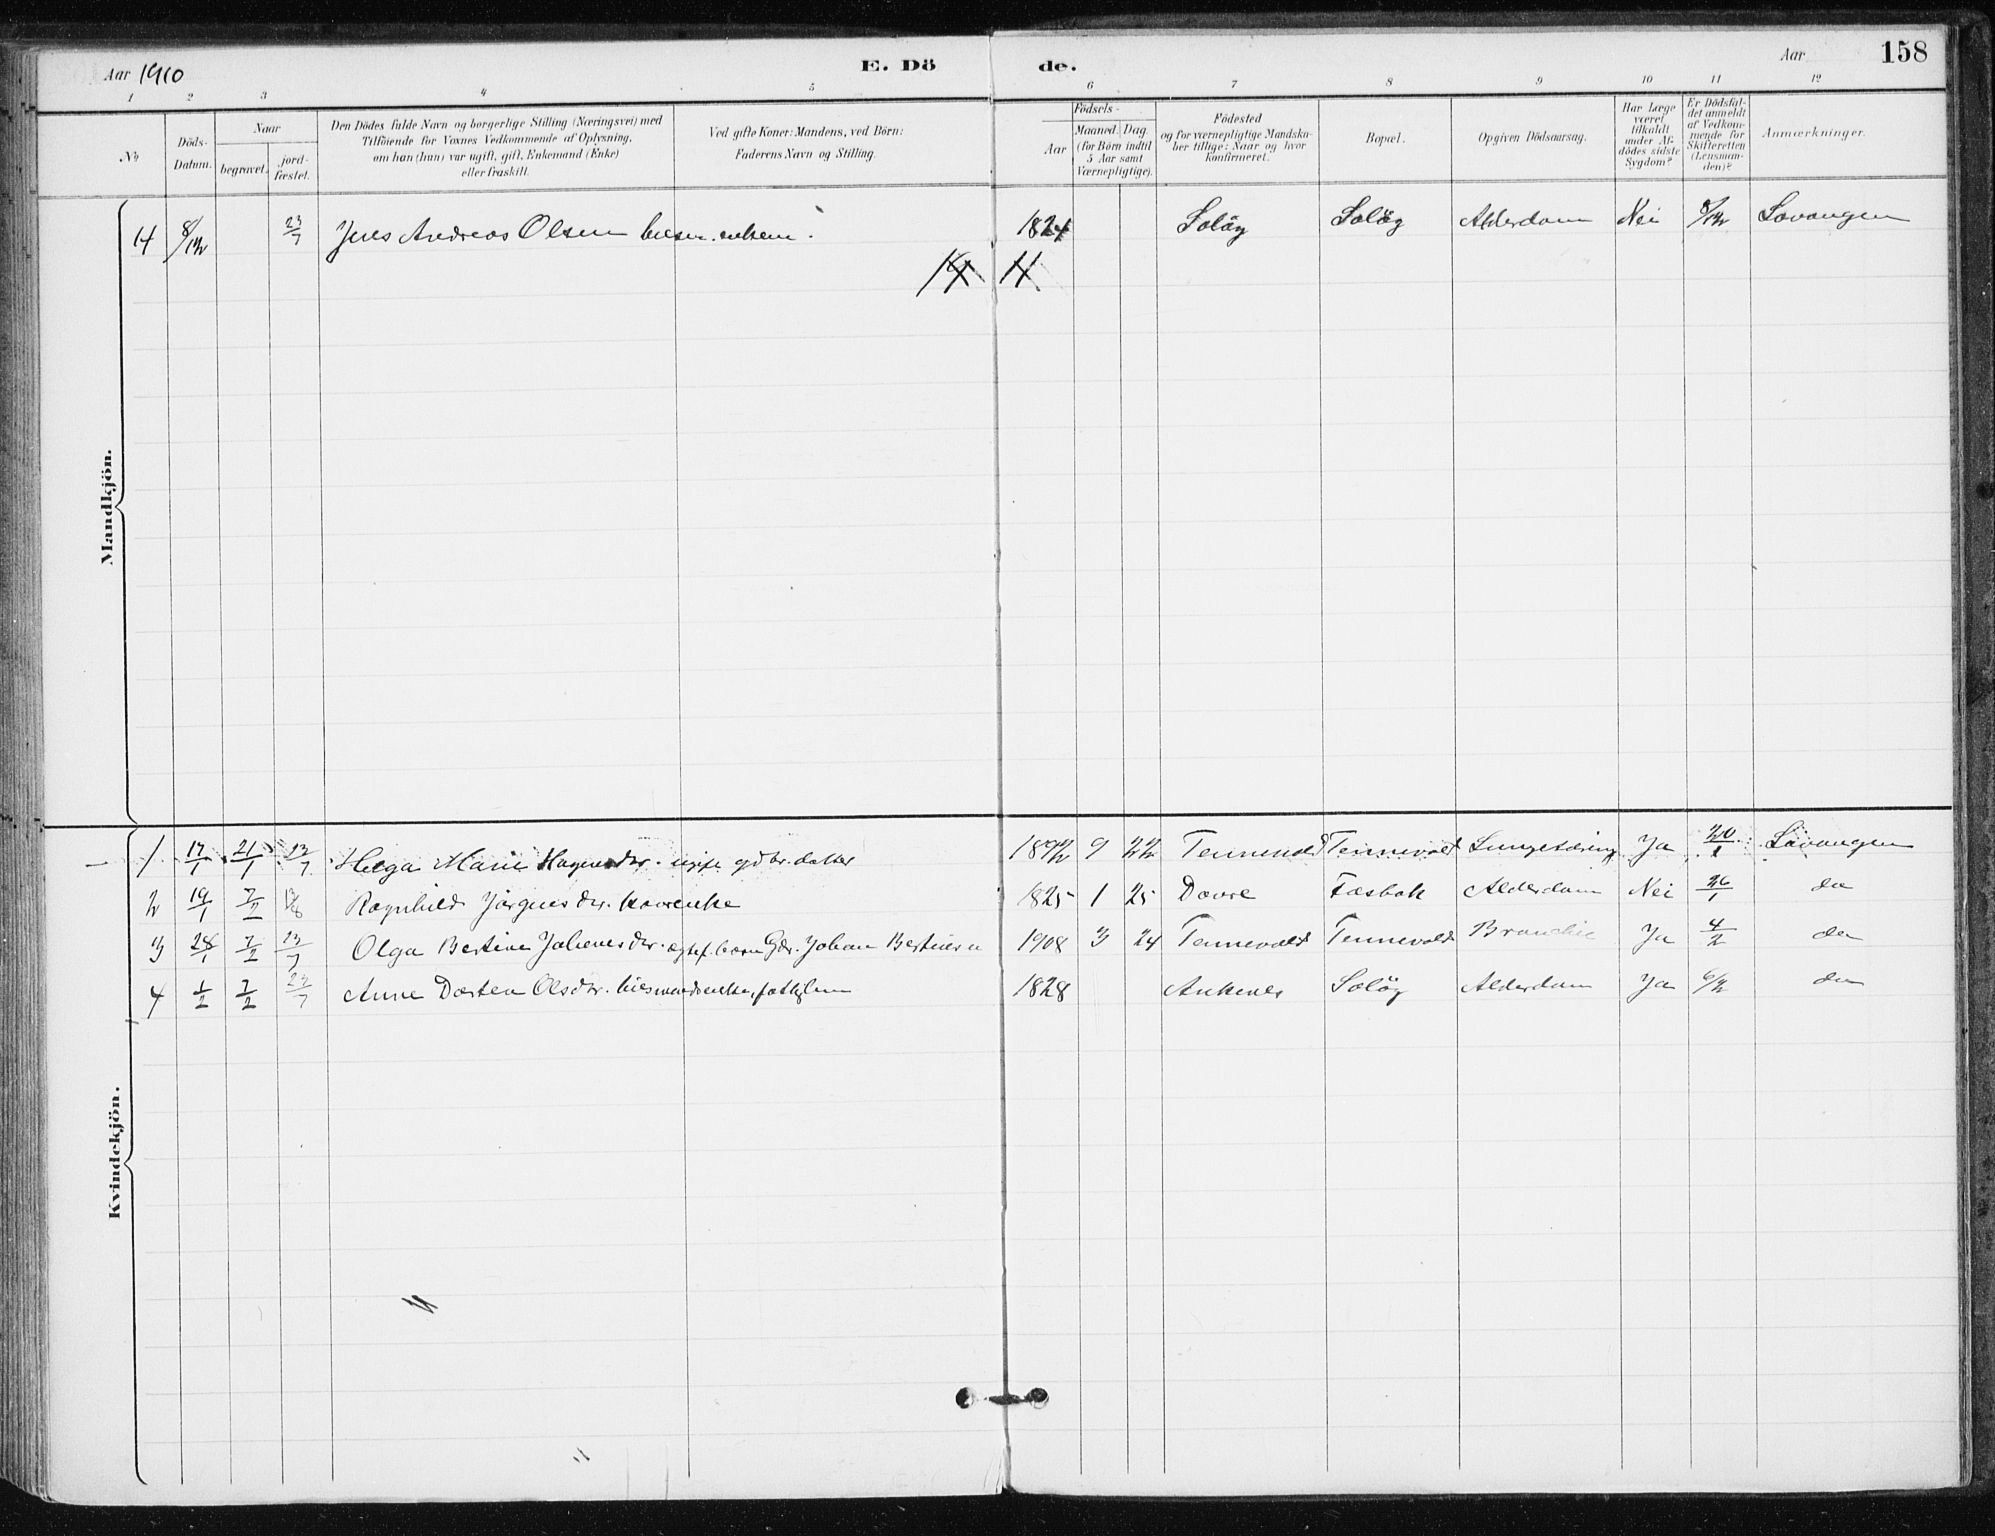 Aar 1910
E. Dö de.
Aar
158
1 2 3 4 5 6 7 8 9 10 11 12
No
Döds-Datum.
Naar
begravet.
jordfæstet.
Den Dödes fulde Navn og borgerlige Stilling (Næringsvei) med
Tilföiende for Voxnes Vedkommende af Oplysning,
om han (hun) var ugift, gift, Enkemand (Enke)
eller fraskilt.
Ved gifte Koner: Mandens, ved Börn:
Faderens Navn og Stilling.
Födsels-
Aar
Maaned. Dag.
(for Börn indtil
5 Aar samt
Værnepligtige).
Födested
og for værnepligtige Mandska-
ber tillige: Naar og hvor
konfirmeret.
Bopæl.
Opgiven Dödsaarsag.
Har Læge
været
tilkaldt
under Af-
dödes sidste
Sygdom?
Er Dödsfal-
det anmeldt
af Vedkom-
mende for
Skifteretten
(Lensman-
den)?
Anmærkninger.
Mandkjön.
14 8/12 23/7 Jens Andreas Olsen 1824 Soløy Soløy Alderdom Nei 8/12 Lavangen
14 14
Kvindekjön.
1 17/1 21/1 23/7 Helga Marie ugift gdbr. datter 1892 9 22 Tennevold Tennevold Ja Lavangen
2 19/1 7/2 Ragnhild Jørgensdtr. 1825 1 25 Dovre Alderdom Nei 26/1 do
3 28/1 7/2 23/7 Olga Johansdtr. Johan 1908 3 24 Tennevold Tennevold Ja 4/2 do
4 1/2 7/2 23/7 Anne Olsdtr. 1828 Ankenes Soløy Alderdom Ja 6/2 do